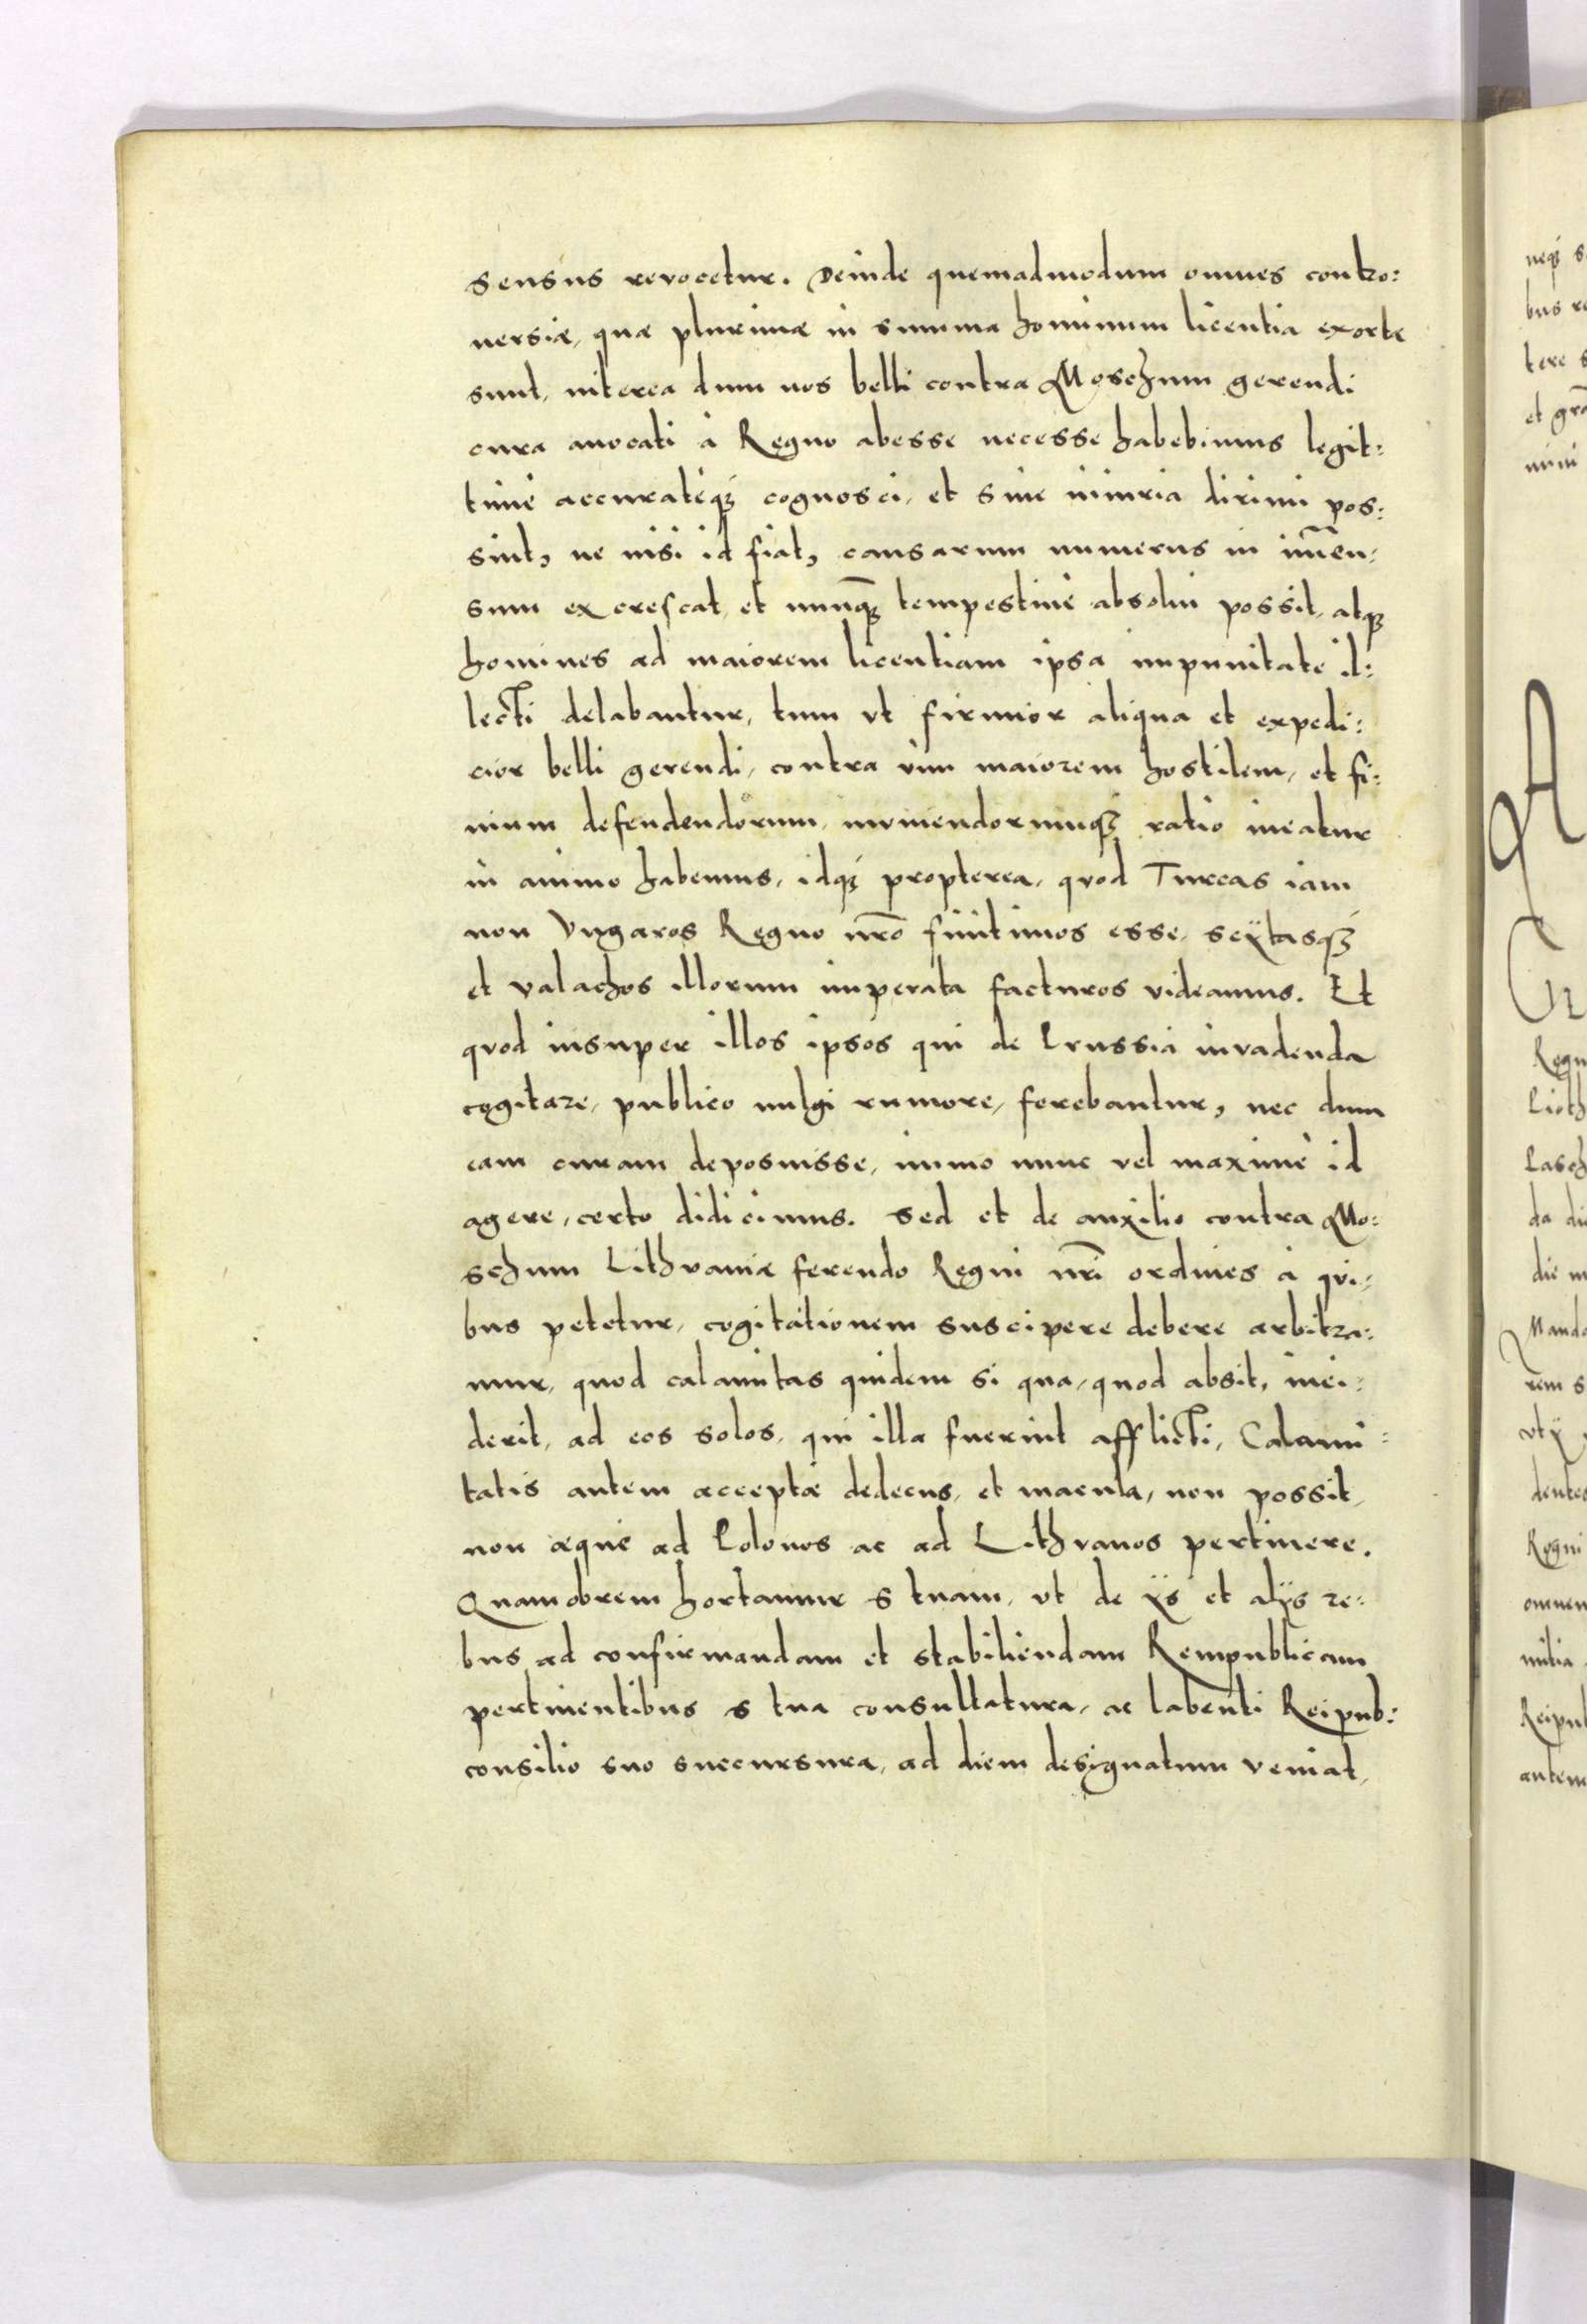 sensus revocetur. Deinde quemadmodum omnes contro:
uersiæ, quæ plurimæ in summa hominum licentia exortæ
sunt, interea dum nos belli contra Moschum gerendi
cura auocati à Regno abesse necesse habebimus legit:
timè accurateqʒ cognosci, et sine iniuria dirimi pos:
sint, ne nisi id fiat, causarum numerus in im̃en,
sum excrescat, et nunqʒ̃ tempestiuè absolui possit, atqʒ
homines ad maiorem licentiam ipsa impunitate il:
lecti delabantur, tum vt firmior aliqua et expedi:
cior belli gerendi, contra vim maiorem hostilem, et fi:
nium defendendorum, muniendorumqʒ ratio ineatur
in animo habemus, idqʒ propterea, quod Turcas iam
non Vngaros Regno nr̃o finitimos esse, scÿtasqʒ
et valachos illorum imperata facturos videamus. Et
quod insuper illos ipsos qui de Prussia invadenda
cogitare, publico uulgi rumore, ferebantur, nec dum
eam curam deposuisse, immo nunc vel maximè id
agere, certo didicimus. Sed et de auxilio contra Mo:
schum Lithvaniæ ferendo Regni nr̃i ordines à qui,
bus petetur, cogitationem suscipere debere arbitra:
mur, quod calamitas quidem si qua, quod absit, inci:
derit, ad eos solos, qui illa fuerint afflicti, Calami:
tatis autem acceptæ dedecus, et macula, non possit,
non æque ad Polonos ac ad Lithvanos pertinere.
Quamobrem hortamur S tuam, vt de ÿs et alÿs re:
bus ad confirmandam et stabiliendam Rempublicam
pertinentibus S tua consultatura, ac labenti Reipub:
consilio suo succursura, ad diem designatum veniat,